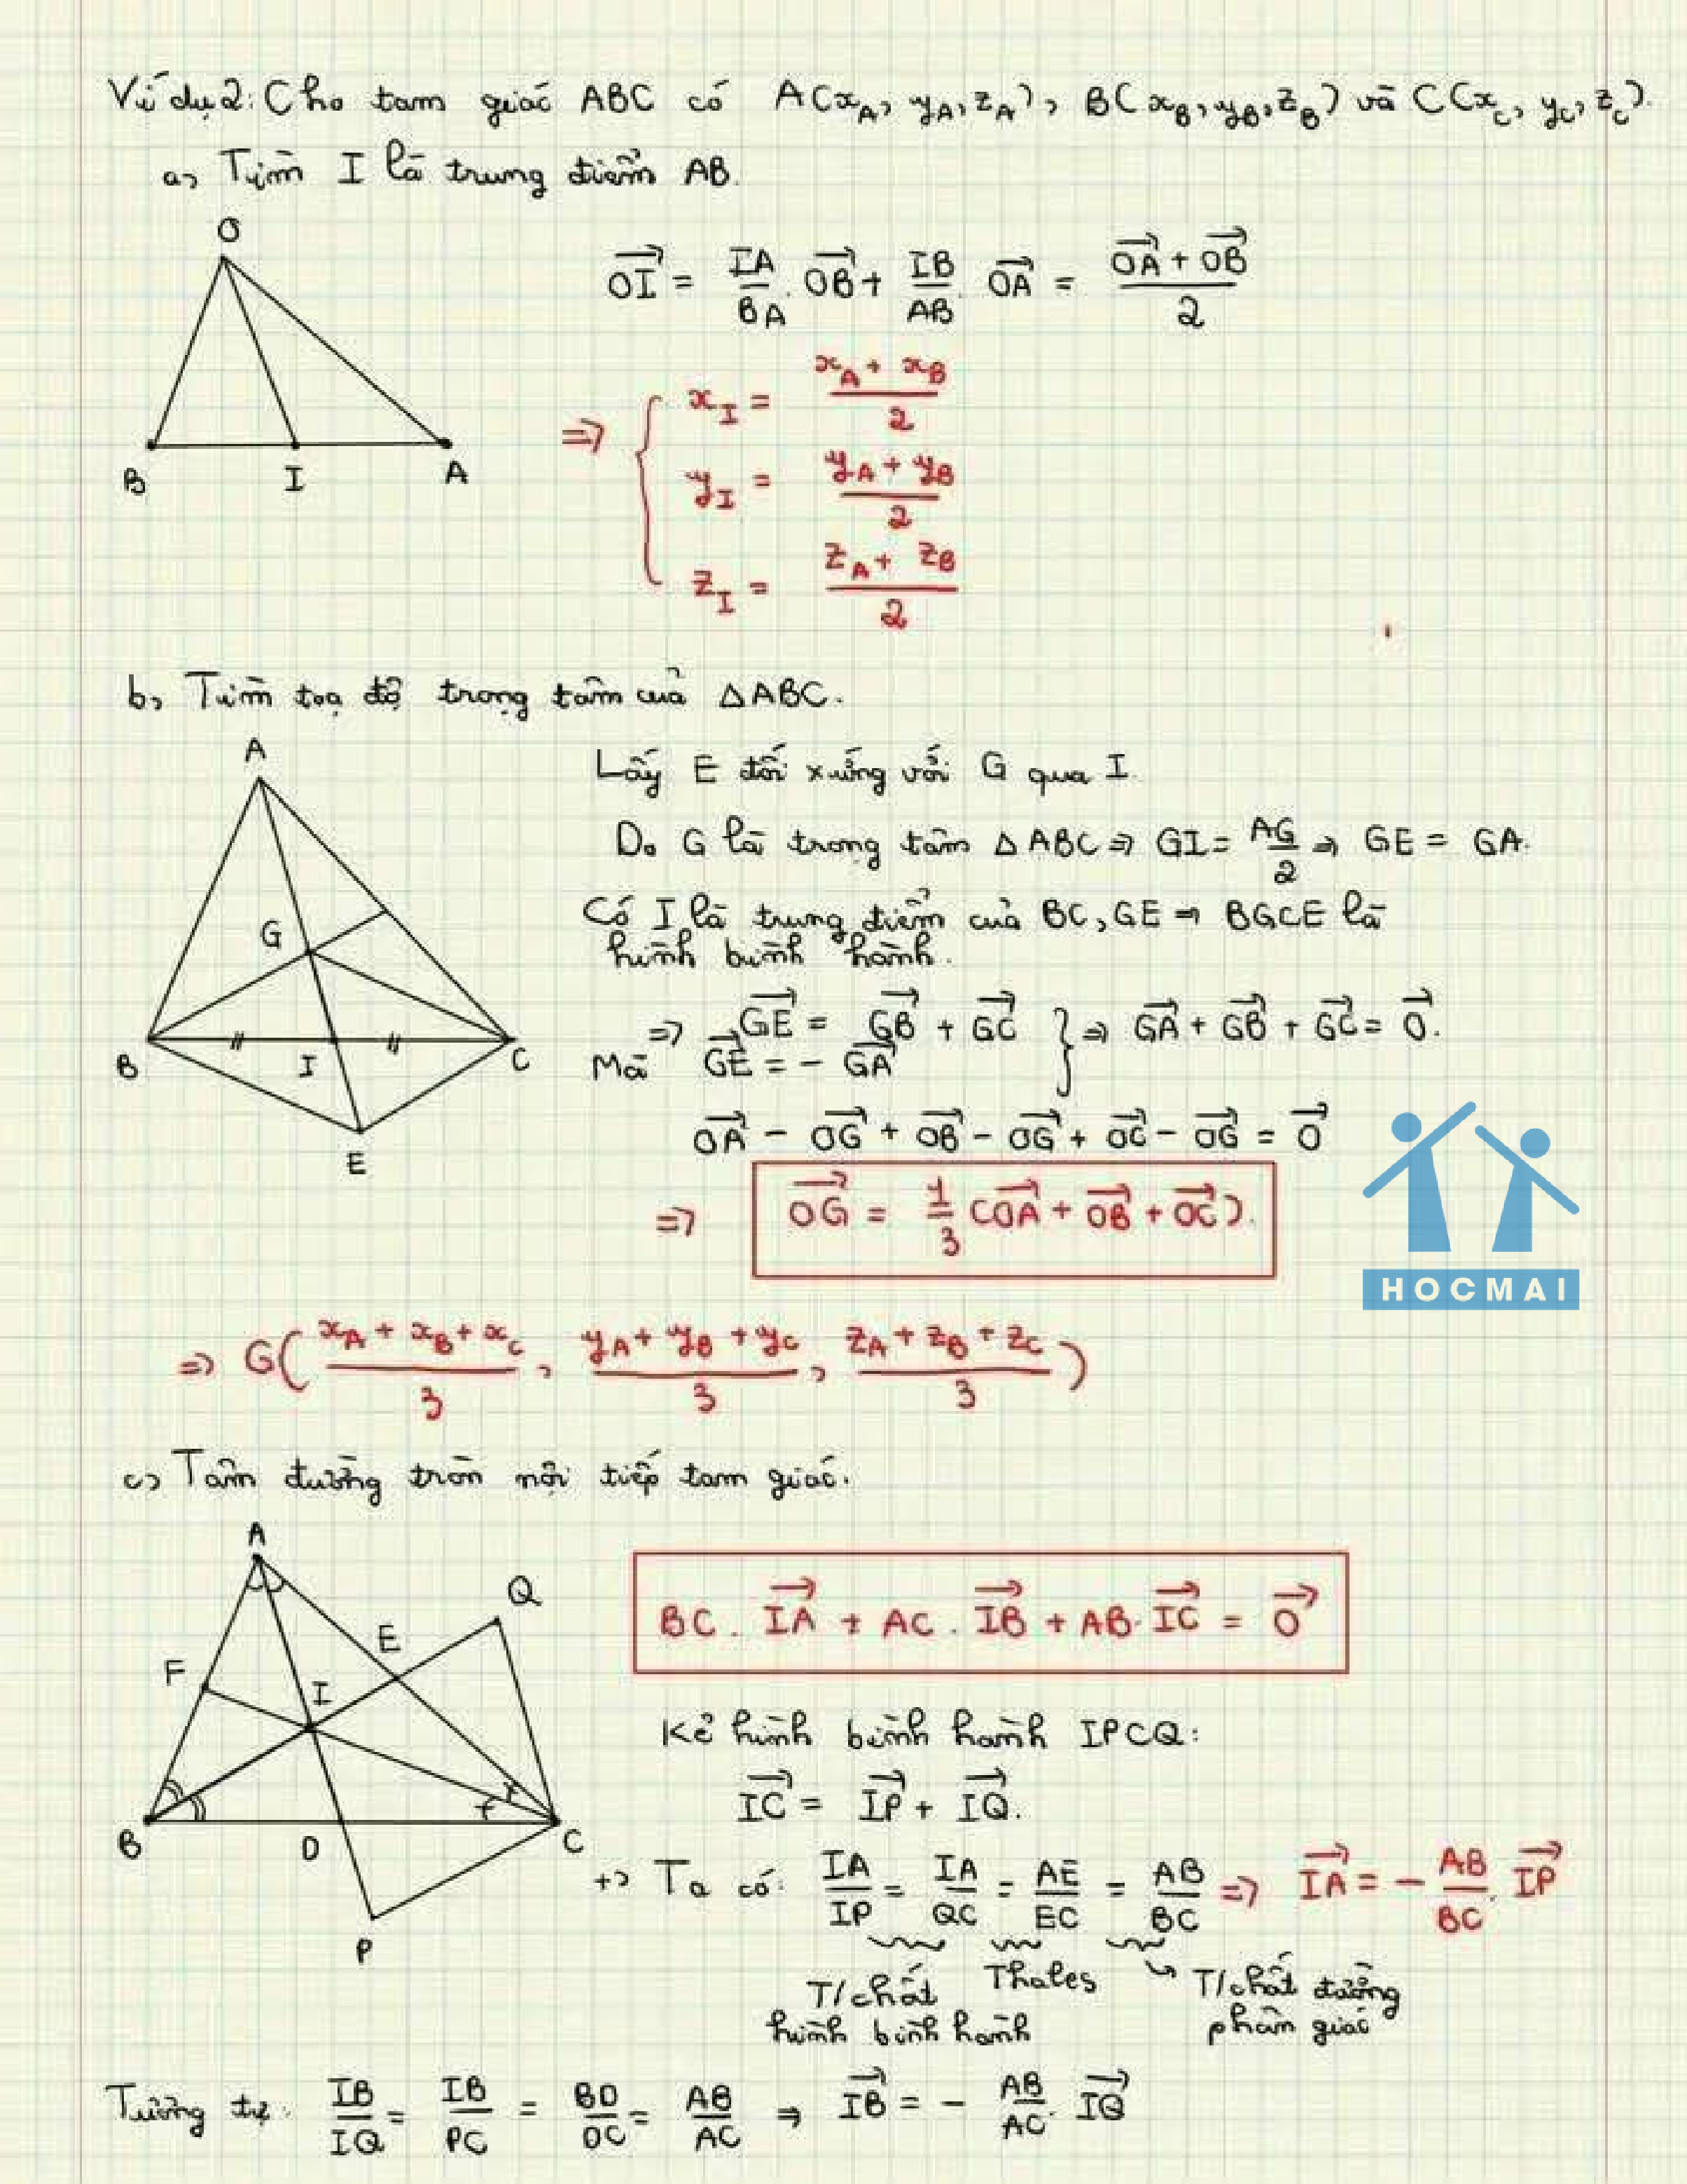 Ví dụ 2: Cho tam giác ABC có A(x_A, y_A, z_A), B(x_B, y_B, z_B) và C(x_C, y_C, z_C).
a, Tìm I là trung điểm AB.
O
B I A
\overrightarrow{OI} = \frac{IA}{BA}. \overrightarrow{OB} + \frac{IB}{AB}. \overrightarrow{OA} = \frac{\overrightarrow{OA} + \overrightarrow{OB}}{2}
⇒ { x_I = \frac{x_A + x_B}{2}
y_I = \frac{y_A + y_B}{2}
z_I = \frac{z_A + z_B}{2}
b, Tìm toạ độ trọng tâm của ΔABC.
A
G
B I C
E
Lấy E đối xứng với G qua I.
Do G là trọng tâm ΔABC ⇒ GI = \frac{AG}{2} ⇒ GE = GA.
Có I là trung điểm của BC, GE ⇒ BGCE là
hình bình hành.
⇒ \overrightarrow{GE} = \overrightarrow{GB} + \overrightarrow{GC} } ⇒ \overrightarrow{GA} + \overrightarrow{GB} + \overrightarrow{GC} = \overrightarrow{0}.
Mà \overrightarrow{GE} = - \overrightarrow{GA}
\overrightarrow{OA} - \overrightarrow{OG} + \overrightarrow{OB} - \overrightarrow{OG} + \overrightarrow{OC} - \overrightarrow{OG} = \overrightarrow{0}
⇒ \overrightarrow{OG} = \frac{1}{3} (\overrightarrow{OA} + \overrightarrow{OB} + \overrightarrow{OC}).
HOCMAI
⇒ G(\frac{x_A + x_B + x_C}{3}, \frac{y_A + y_B + y_C}{3}, \frac{z_A + z_B + z_C}{3})
c, Tâm đường tròn nội tiếp tam giác.
A
Q
E
F
I
B D C
P
BC. \overrightarrow{IA} + AC. \overrightarrow{IB} + AB. \overrightarrow{IC} = \overrightarrow{0}
Kẻ hình bình hành IPCQ:
\overrightarrow{IC} = \overrightarrow{IP} + \overrightarrow{IQ}.
+, Ta có: \frac{IA}{IP} = \frac{IA}{QC} = \frac{AE}{EC} = \frac{AB}{BC} ⇒ \overrightarrow{IA} = - \frac{AB}{BC}. \overrightarrow{IP}
T/chất Thales ↳ T/chất đường
hình bình hành phân giác
Tương tự: \frac{IB}{IQ} = \frac{IB}{PC} = \frac{BD}{DC} = \frac{AB}{AC} ⇒ \overrightarrow{IB} = - \frac{AB}{AC}. \overrightarrow{IQ}